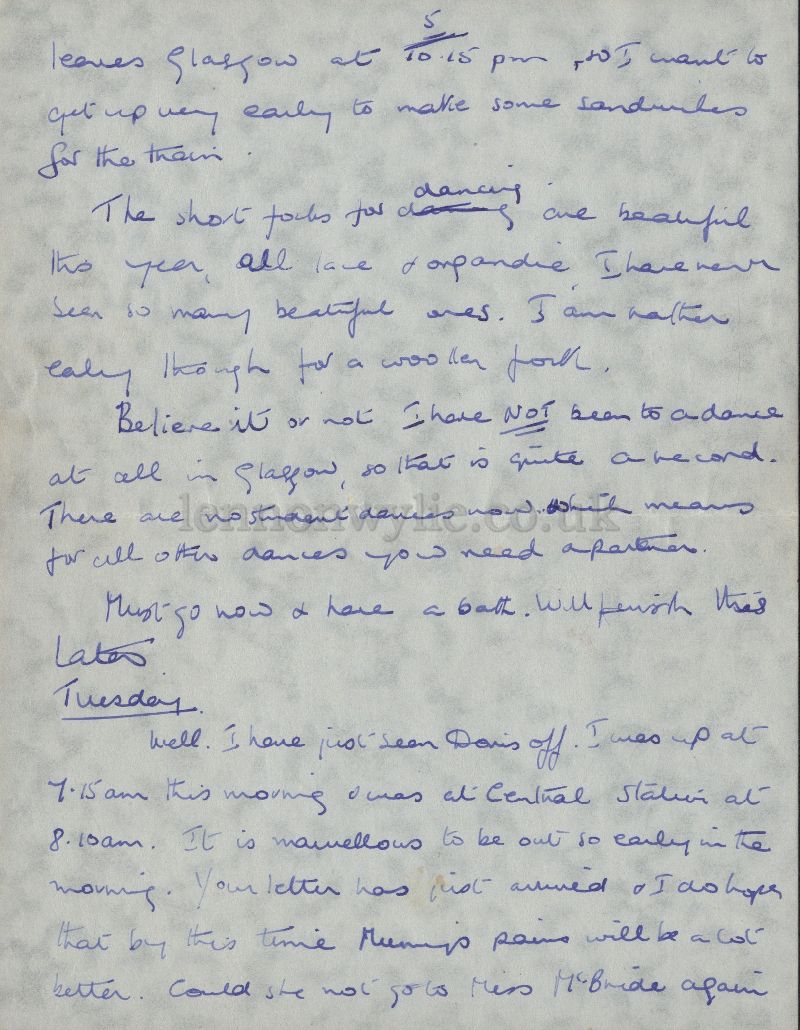 leaves Glasgow at 10.15 pm, so I want to
5
get up very early to make some sandwiches
for the train.
dancing
The short frocks for dancing are beautiful
this year, all lace & organdie, I have never
seen so many beautiful ones. I am rather
early though for a woollen frock.
Believe it or not I have NOT been to a dance
at all in Glasgow, so that is quite a record.
There are no student dances now which means
for all other dances you need a partner.
lennonwylie.co.uk
Must go now & have a bath. Will finish this
Later
Tuesday.
Well. I have just seen Doris off. I was up at
7.15am this morning & was at Central Station at
8.10am. It is marvellous to be out so early in the
morning. Your letter has just arrived & I do hope
that by this time Mummys pains will be a lot
better. Could she not go to Miss McBride again